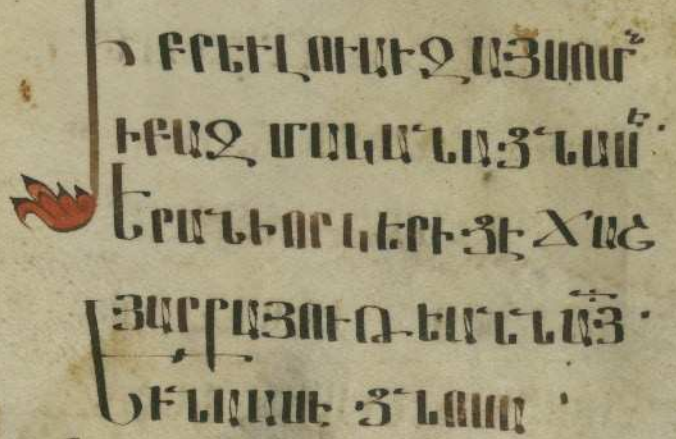 ԻԲՐԵՒ ԼՈՒԱՒ ԶԱՅՍ ՈՄՆ
Ի ԲԱԶՄԱԿԱՆԱՑՆ ԱՍԷ․
ԵՐԱՆԻ ՈՐ ԿԵՐԻՑԷ ՃԱՇ
ՅԱՐՔԱՅՈՒԹԵԱՆՆ ԱՅ․
ԵՒ ՆԱ ԱՍԷ ՑՆՈՍԱ․